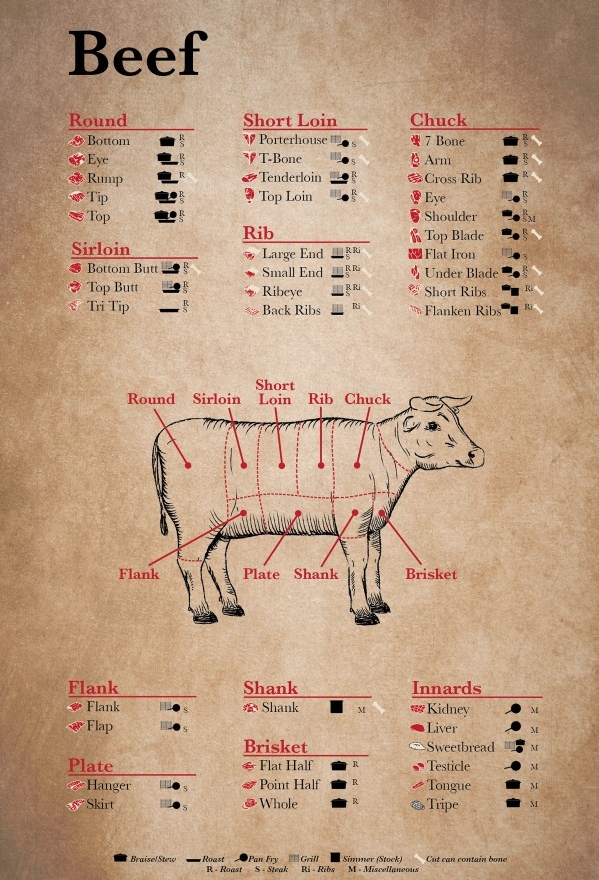 Beef
Round
Bottom R S
Eye R S
Rump R
Tip R S
Top R S
Sirloin
Bottom Butt R S
Top Butt R S
Tri Tip R S
Short Loin
Porterhouse S
T-Bone S
Tenderloin R S
Top Loin R S
Rib
Large End R Ri S
Small End R Ri S
Ribeye R S
Back Ribs Ri
Chuck
7 Bone R S
Arm R S
Cross Rib R S
Eye R S
Shoulder R S M
Top Blade R S
Flat Iron S
Under Blade R S
Short Ribs Ri
Flanken Ribs Ri
Short
Round Sirloin Loin Rib Chuck
Flank Plate Shank Brisket
Flank
Flank S
Flap S
Plate
Hanger S
Skirt S
Shank
Shank M
Brisket
Flat Half R
Point Half R
Whole R
Innards
Kidney M
Liver M
Sweetbread M
Testicle M
Tongue M
Tripe M
Braise/Stew Roast Pan Fry Grill Simmer (Stock) Cut can contain bone
R - Roast S - Steak Ri - Ribs M - Miscellaneous